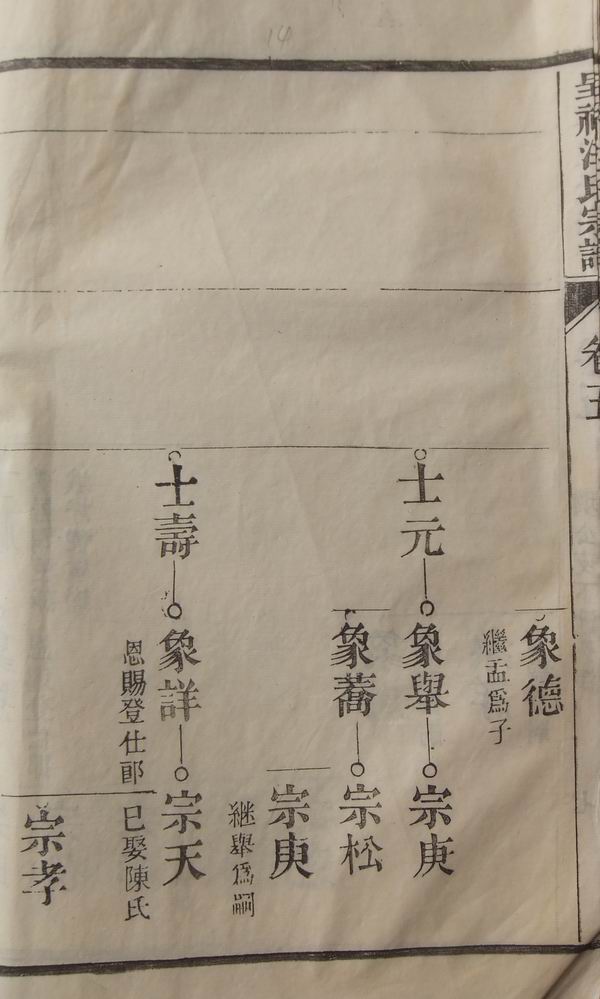 汪氏宗譜
卷五
象德
繼孟爲子
士元
象舉
宗庚
象蕎
宗松
宗庚
継舉爲嗣
士壽
象詳
恩賜登仕郎
宗天
已娶陳氏
宗孝